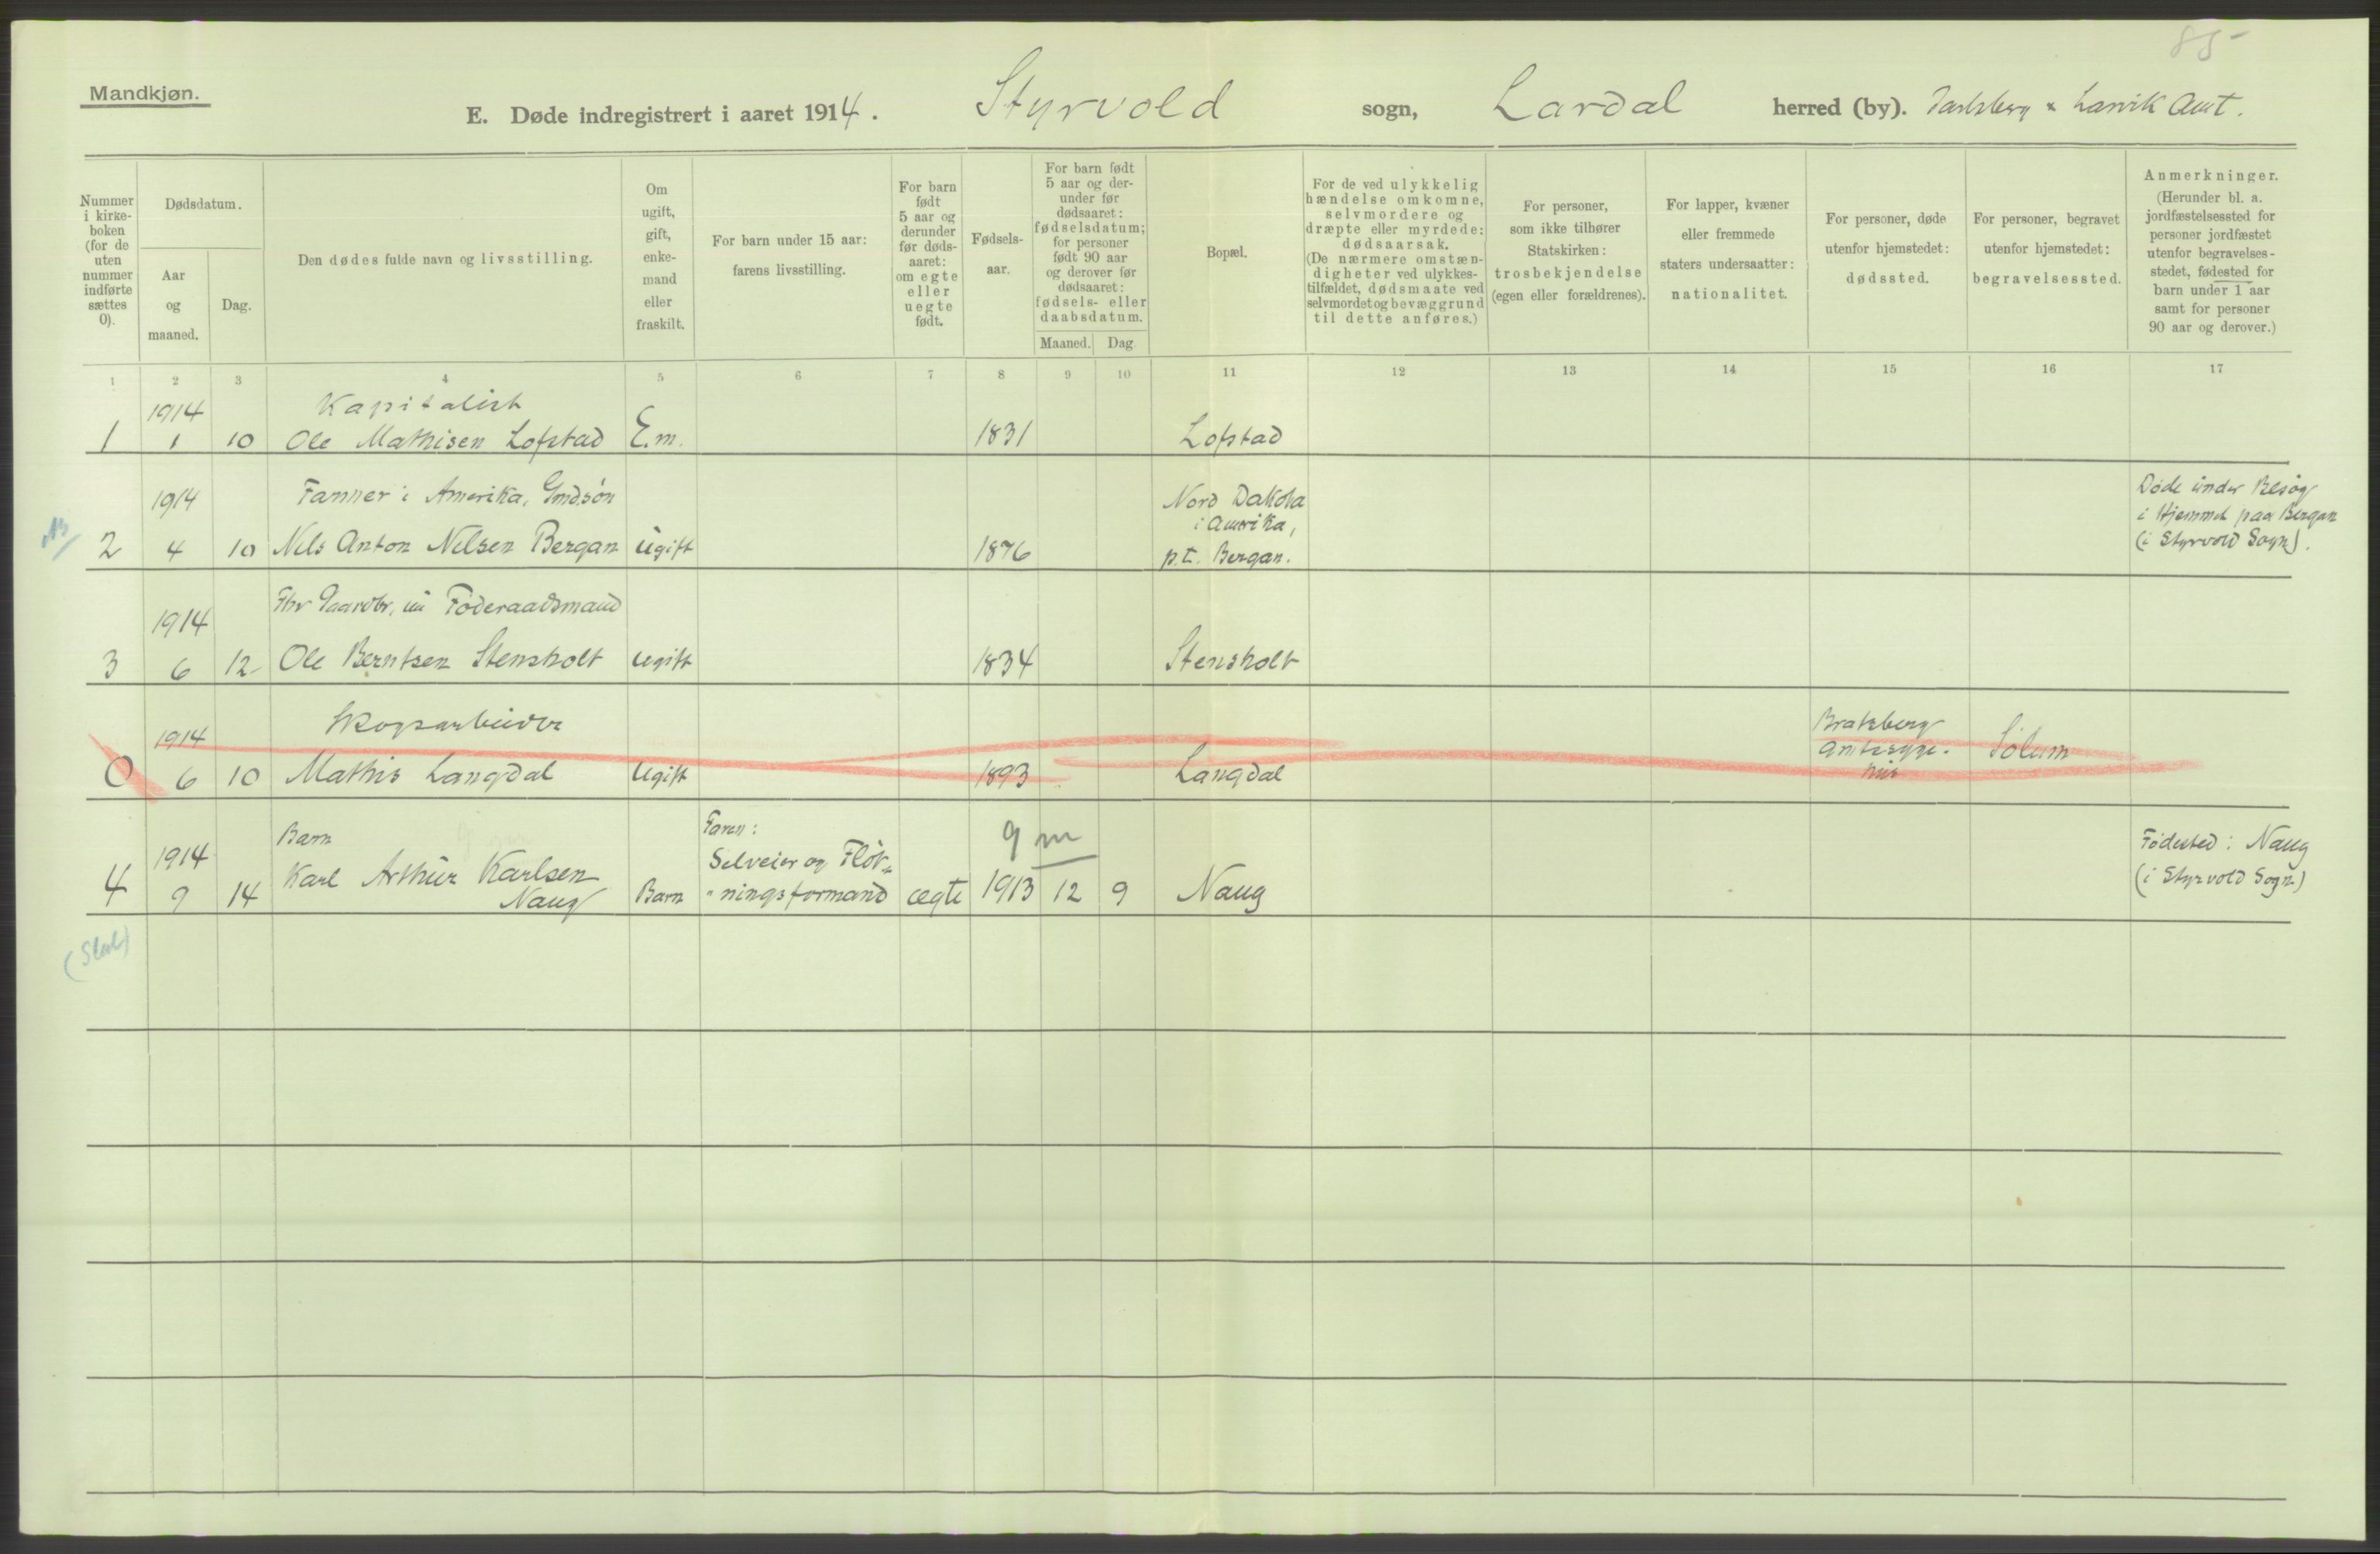 85
Mandkjøn.
E. Døde indregistrert i aaret 1914. Styrvold sogn, Lardal herred (by). Jarlsberg & Larvik Amt.
Nummer i kirke-boken (for de uten nummer indførte sættes 0).
Dødsdatum.
Aar og maaned.
Dag.
Den dødes fulde navn og livsstilling.
Om ugift, gift, enke-mand eller fraskilt.
For barn under 15 aar: farens livsstilling.
For barn født 5 aar og derunder før døds-aaret: om egte eller uegte født.
Fødsels-aar.
For barn født 5 aar og der-under før dødsaaret: fødselsdatum; for personer født 90 aar og derover før dødsaaret: fødsels- eller daabsdatum.
Maaned. Dag
Bopæl.
For de ved ulykkelig hændelse omkomne, selvmordere og dræpte eller myrdede: dødsaarsak. (De nærmere omstæn-digheter ved ulykkes-tilfældet, dødsmaate ved selvmordet og bevæggrund til dette anføres.)
For personer, som ikke tilhører Statskirken: trosbekjendelse (egen eller forældrenes).
For lapper, kvæner eller fremmede staters undersaatter: nationalitet.
For personer, døde utenfor hjemstedet: dødssted.
For personer, begravet utenfor hjemstedet: begravelsessted.
Anmerkninger. (Herunder bl. a. jordfæstelsessted for personer jordfæstet utenfor begravelses-stedet, fødested for barn under 1 aar samt for personer 90 aar og derover.)
1 2 3 4 5 6 7 8 9 10 11 12 13 14 15 16 17
1914 Kapitalist
1 1 10 Ole Mathisen Lofstad E.m. 1831 Lofstad
1914 Farmer i Amerika, Grdsøn Nord Dakota i Amerika, Døde under Besøg i Hjemmet paa Bergan
2 4 10 Nils Anton Nilsen Bergan ugift 1876 p.t. Bergan. (i Styrvold Sogn).
1914 Fhv Gaardbr, nu Føderaadsmand
3 6 12 Ole Berntsen Stensholt ugift 1834 Stensholt
1914 Skogsarbeider Bratsberg Amtssyge-hus Sølum
0 6 10 Mathis Langdal ugift 1893 Langdal
Barn Faren: 9 m
1914 Karl Arthur Karlsen Selveier og Fløt- Fødested: Naug
4 9 14 Naug Barn ningsformand ægte 1913 12 9 Naug (i Styrvold Sogn)